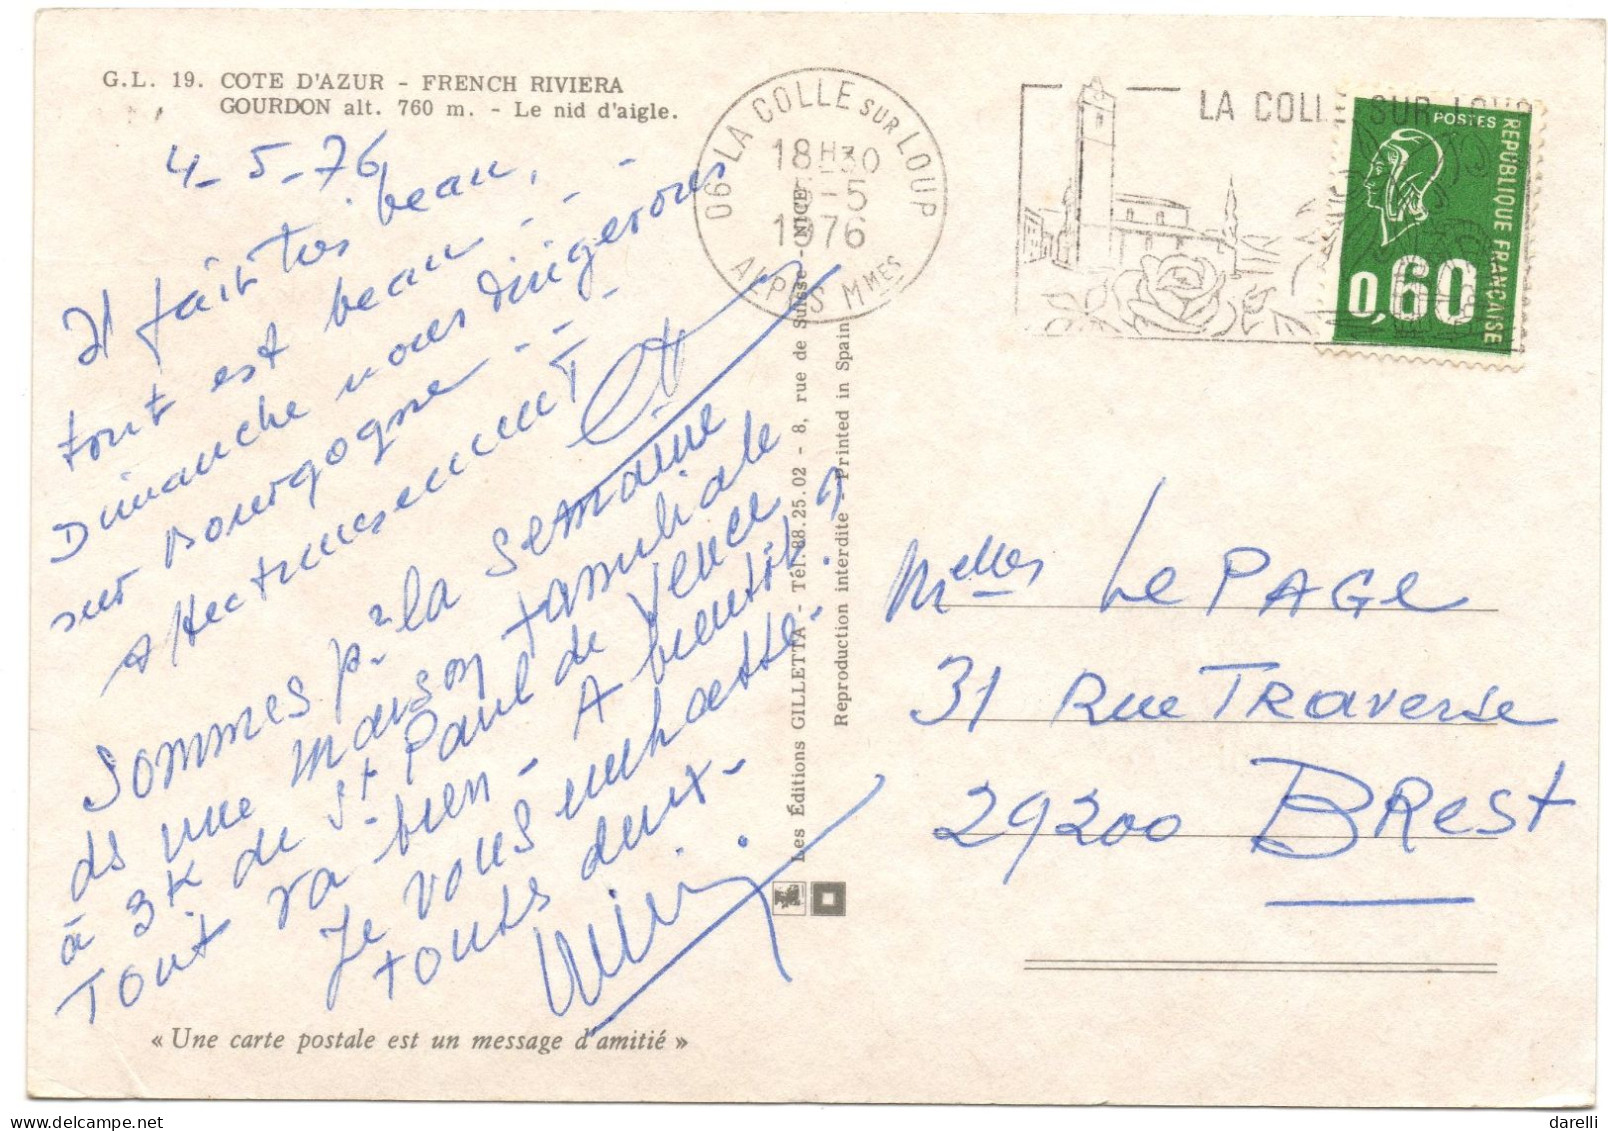 G.L. 19. COTE D'AZUR - FRENCH RIVIERA
GOURDON alt. 760 m. - Le nid d'aigle.
4-5-76
Il fait très beau,
tout est beau - - -
Dimanche nous dirigerons
sur Bourgogne - - -
Affectueusement
Sommes pr la semaine
ds une maison familiale
à 3K de St Paul de Vence
Tout va bien - A bientôt ?
Je vous embrasse
toutes deux -
« Une carte postale est un message d'amitié »
Les Éditions GILLETTA - Tél. 88.25.02 - 8, rue de Suisse - NICE
Reproduction interdite - Printed in Spain
06 LA COLLE SUR LOUP
18H30
-5
1976
ALPES MMES
LA COLLE SUR LOUP
POSTES
REPUBLIQUE FRANÇAISE
0,60
Melles Le PAGE
31 Rue Traverse
29200 BREST
darelli